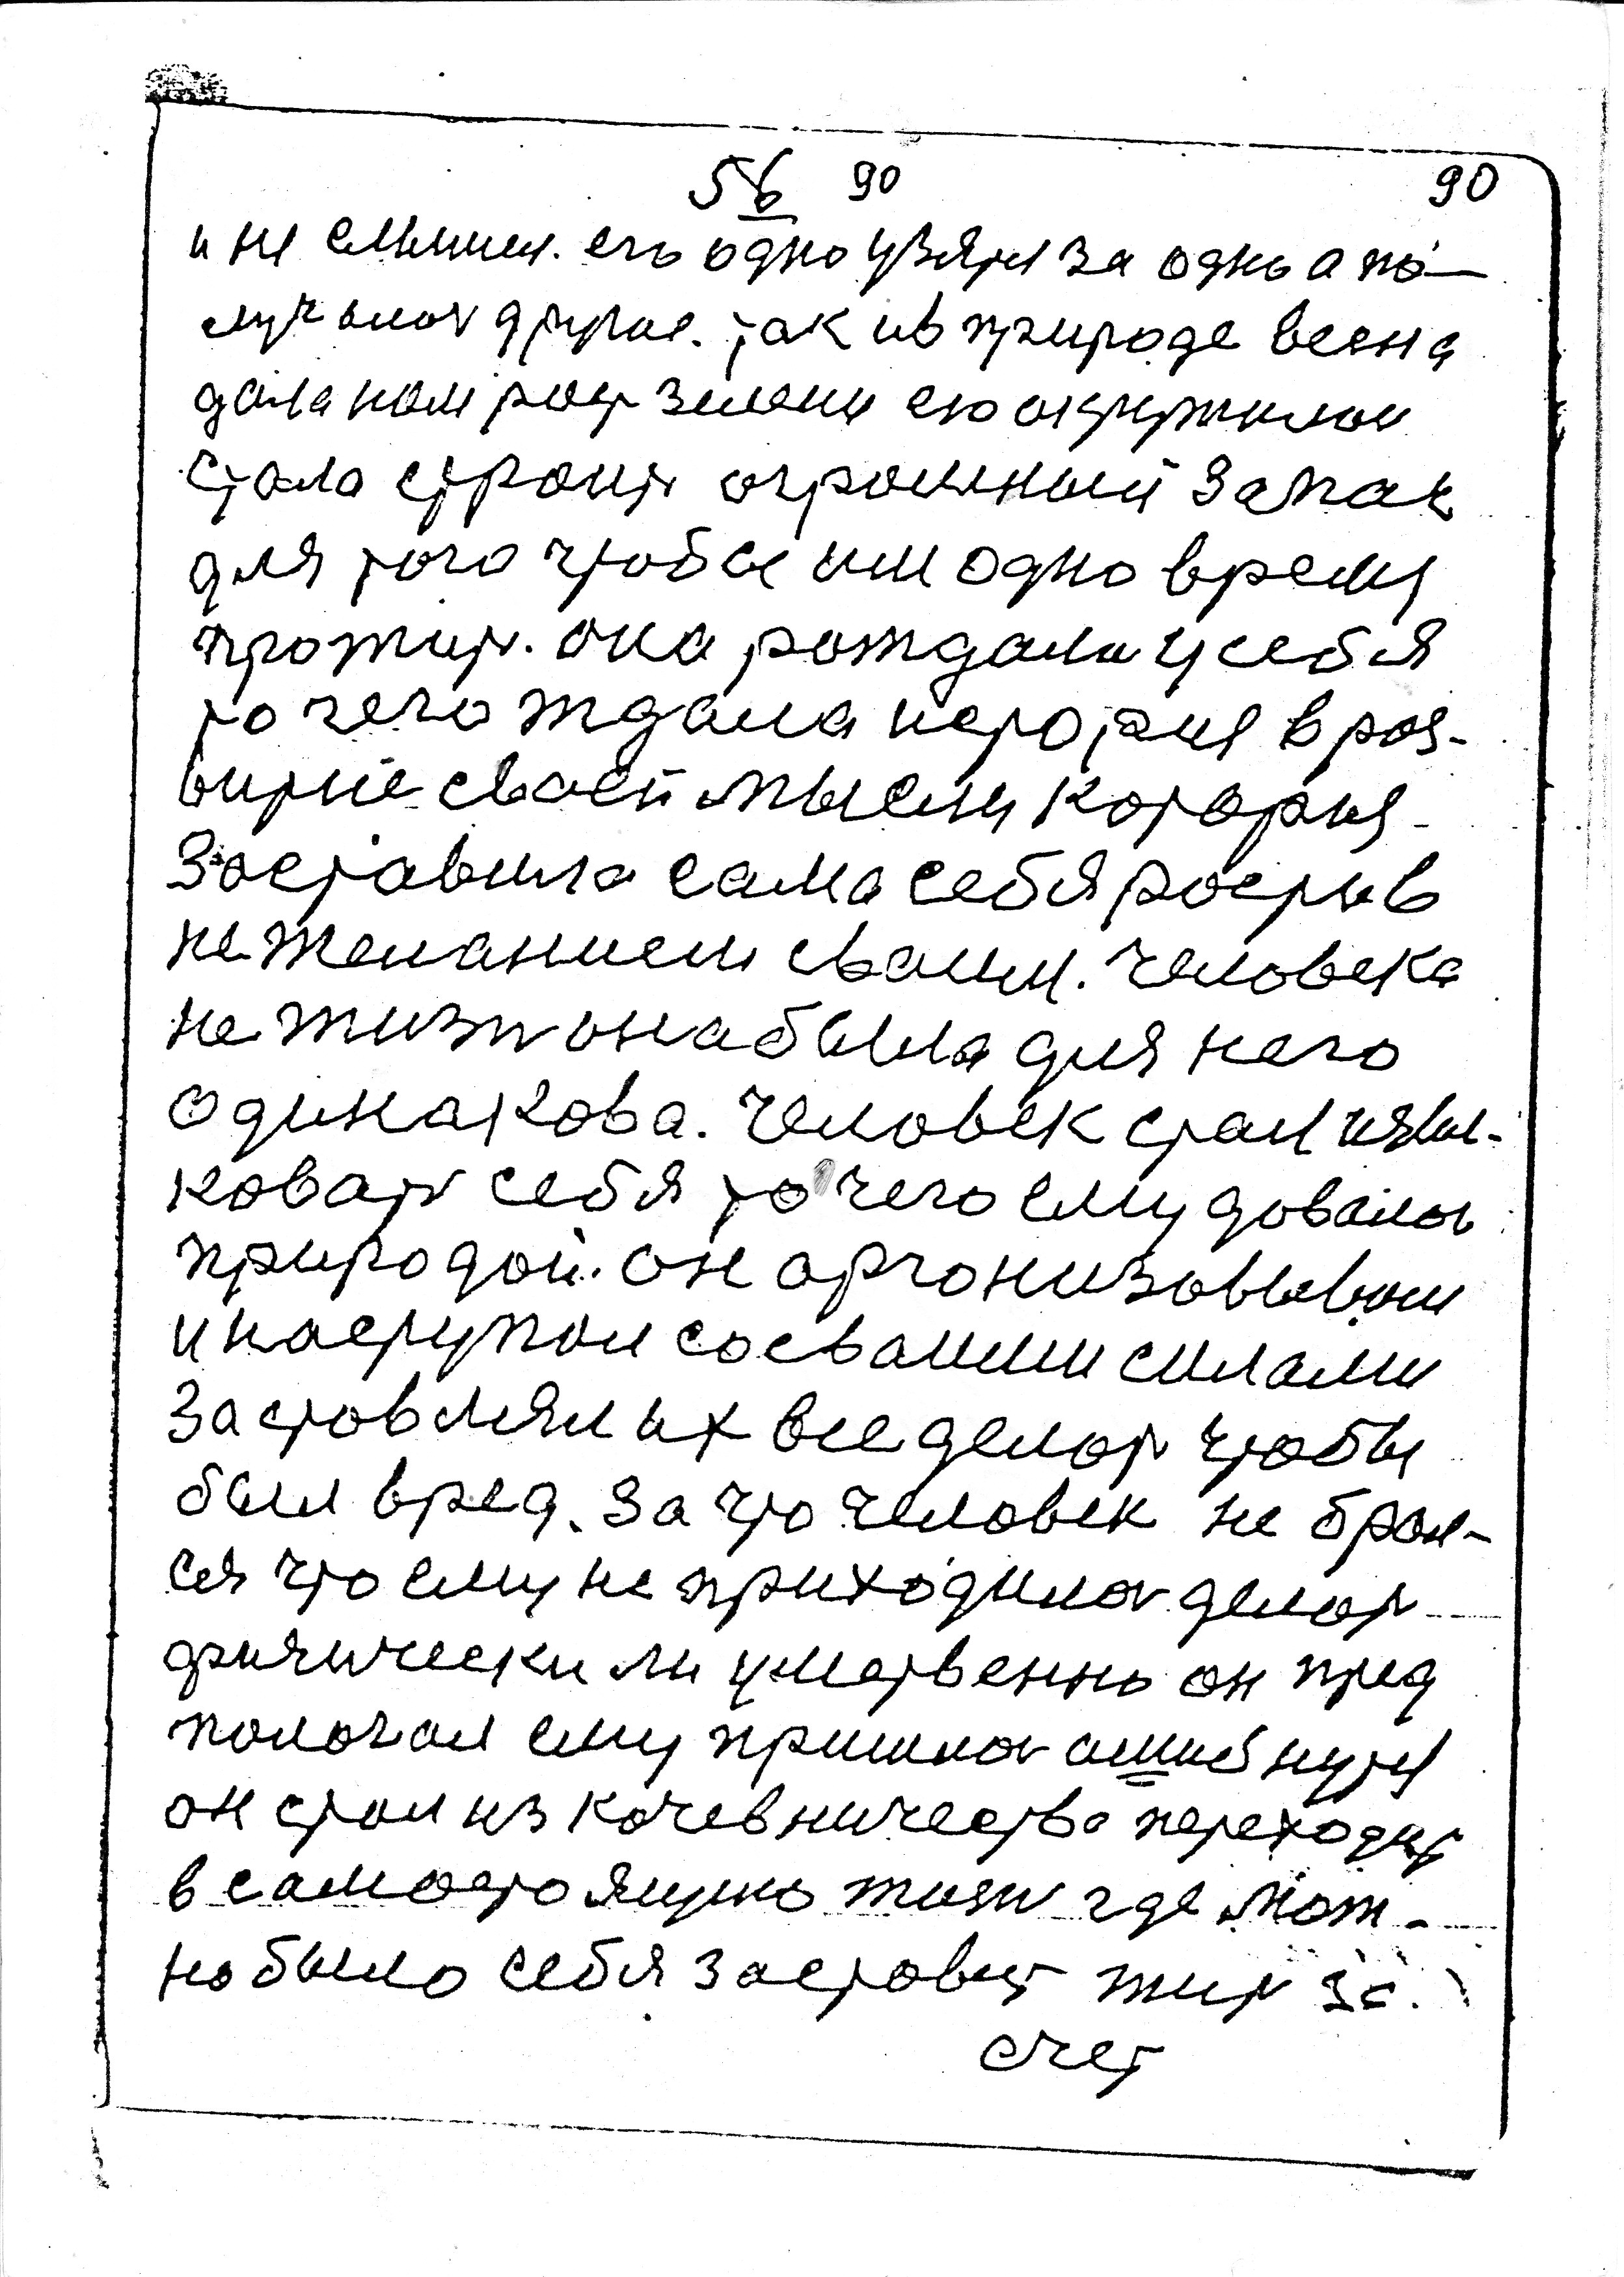 56 90 90
и не его одно узяти за одно а по-
лучалось другие. так и в природе весна
дала нам рост зилени ею окружилои
стала строить огромный запас
для того чтобы им одно время
прожить. она рождала у себя
то чего ждала история в роз-
витие своей мысли которыя
заставила сама себя росры в
не желанием своим. человека
не жизнь она была для него
одинакова. человек стал
ковать себя то чего ему довалось
природой. он оргонизовывал
и поступал со своими силами
застовлял их все делать чтобы
был вред. за что человек не брал-
ся что ему не приходилось делать
физически ли умственно он пред
пологал ему пришлось ошибнути
он стал из кочевничества переходит
в самостоящию жизнь где мож-
но было себя заставит жить за
счет